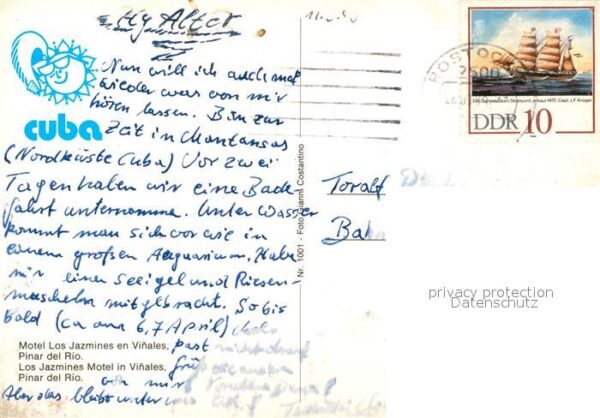 Hy Alter
Nun will ich auch mal
wieder was von mir
hören lassen. Bin zur
Zeit in Mantansas
(Nordküste Cuba) Vor zwei
Tagen haben wir eine Bade
fahrt unternomme. Unter Wasser
kommt man sich vor wie in
einem großen Aquarium. Habe
mir einen Seeigel und Riesen-
muscheln mitgebracht. So bis
Bald (ca am 6,7 April)
cuba
Motel Los Jazmines en Viñales,
Pinar del Río.
Los Jazmines Motel in Viñales,
Pinar del Río.
von mir
Aber das bleibt unter uns
Nr. 1001 - Foto Gianni Costantino
ROSTOCK
2500
DDR 10
Toralf
Bahn
privacy protection
Datenschutz